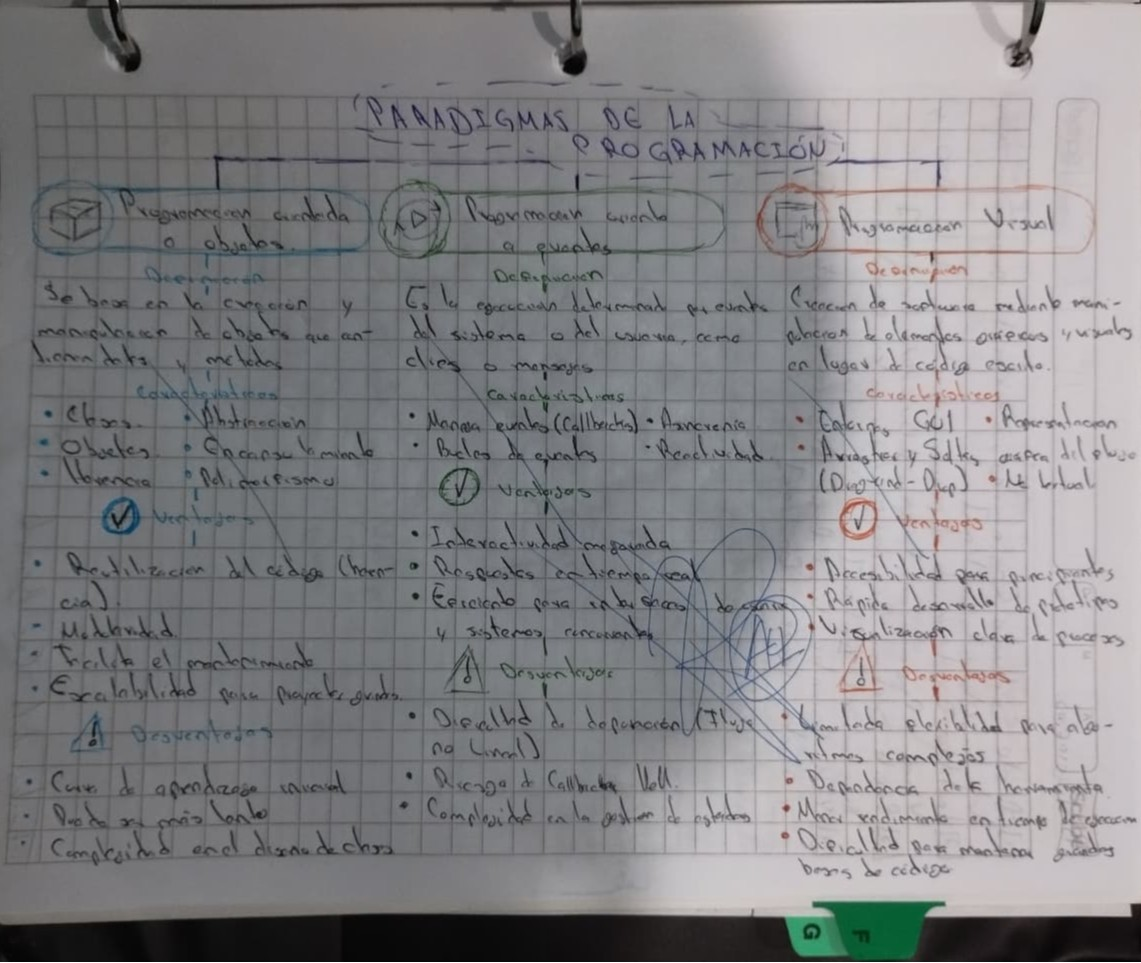 PARADIGMAS DE LA
PROGRAMACIÓN
Programacion orientada
a objetos.
Descripción
Se basa en la creación y
manipulacion de objetos que con-
tienen datos y metodos
Características
• Clases. • Abstraccion
• Objetos • Encapsulamiento
• Herencia • Polimorfismo
Ventajas
• Reutilización del código (heren-
cia).
• Modularidad.
• Facilita el mantenimiento
• Escalabilidad para proyectos grandes.
Desventajas
• Curva de aprendizaje inicial
• Puede ser más lento
• Complejidad en el diseño de clases
Programacion orientada
a eventos
Descripcion
Es la ejecucion determinada por eventos
del sistema o del usuario, como
clics o mensajes
Características
• Maneja eventos (Callbacks) • Asincronia
• Bucles de eventos • Reactividad
Ventajas
• Interactividad mejorada
• Respuestas en tiempo real
• Eficiente para interfaces de
y sistemas concurrentes
Desventajas
• Dificultad de depuración (Flujo
no lineal)
• Riesgo de Callback Hell.
• Complejidad en la gestion de estados
Programacion Visual
Descripcion
Creacion de software mediante mani-
pulacion de elementos graficos y visuales
en lugar de código escrito.
Características
• Entornos GUI • Representacion
• Arrastrar y Soltar del flujo
(Drag-and-Drop)
Ventajas
• Accesibilidad para principiantes
• Rápido desarrollo de prototipos
• Visualización clara de procesos
Desventajas
• Limitada flexibilidad para algo-
ritmos complejos
• Dependencia de la herramienta.
• Menor rendimiento en tiempo de ejecucion
• Dificultad para mantener grandes
bases de código
G F